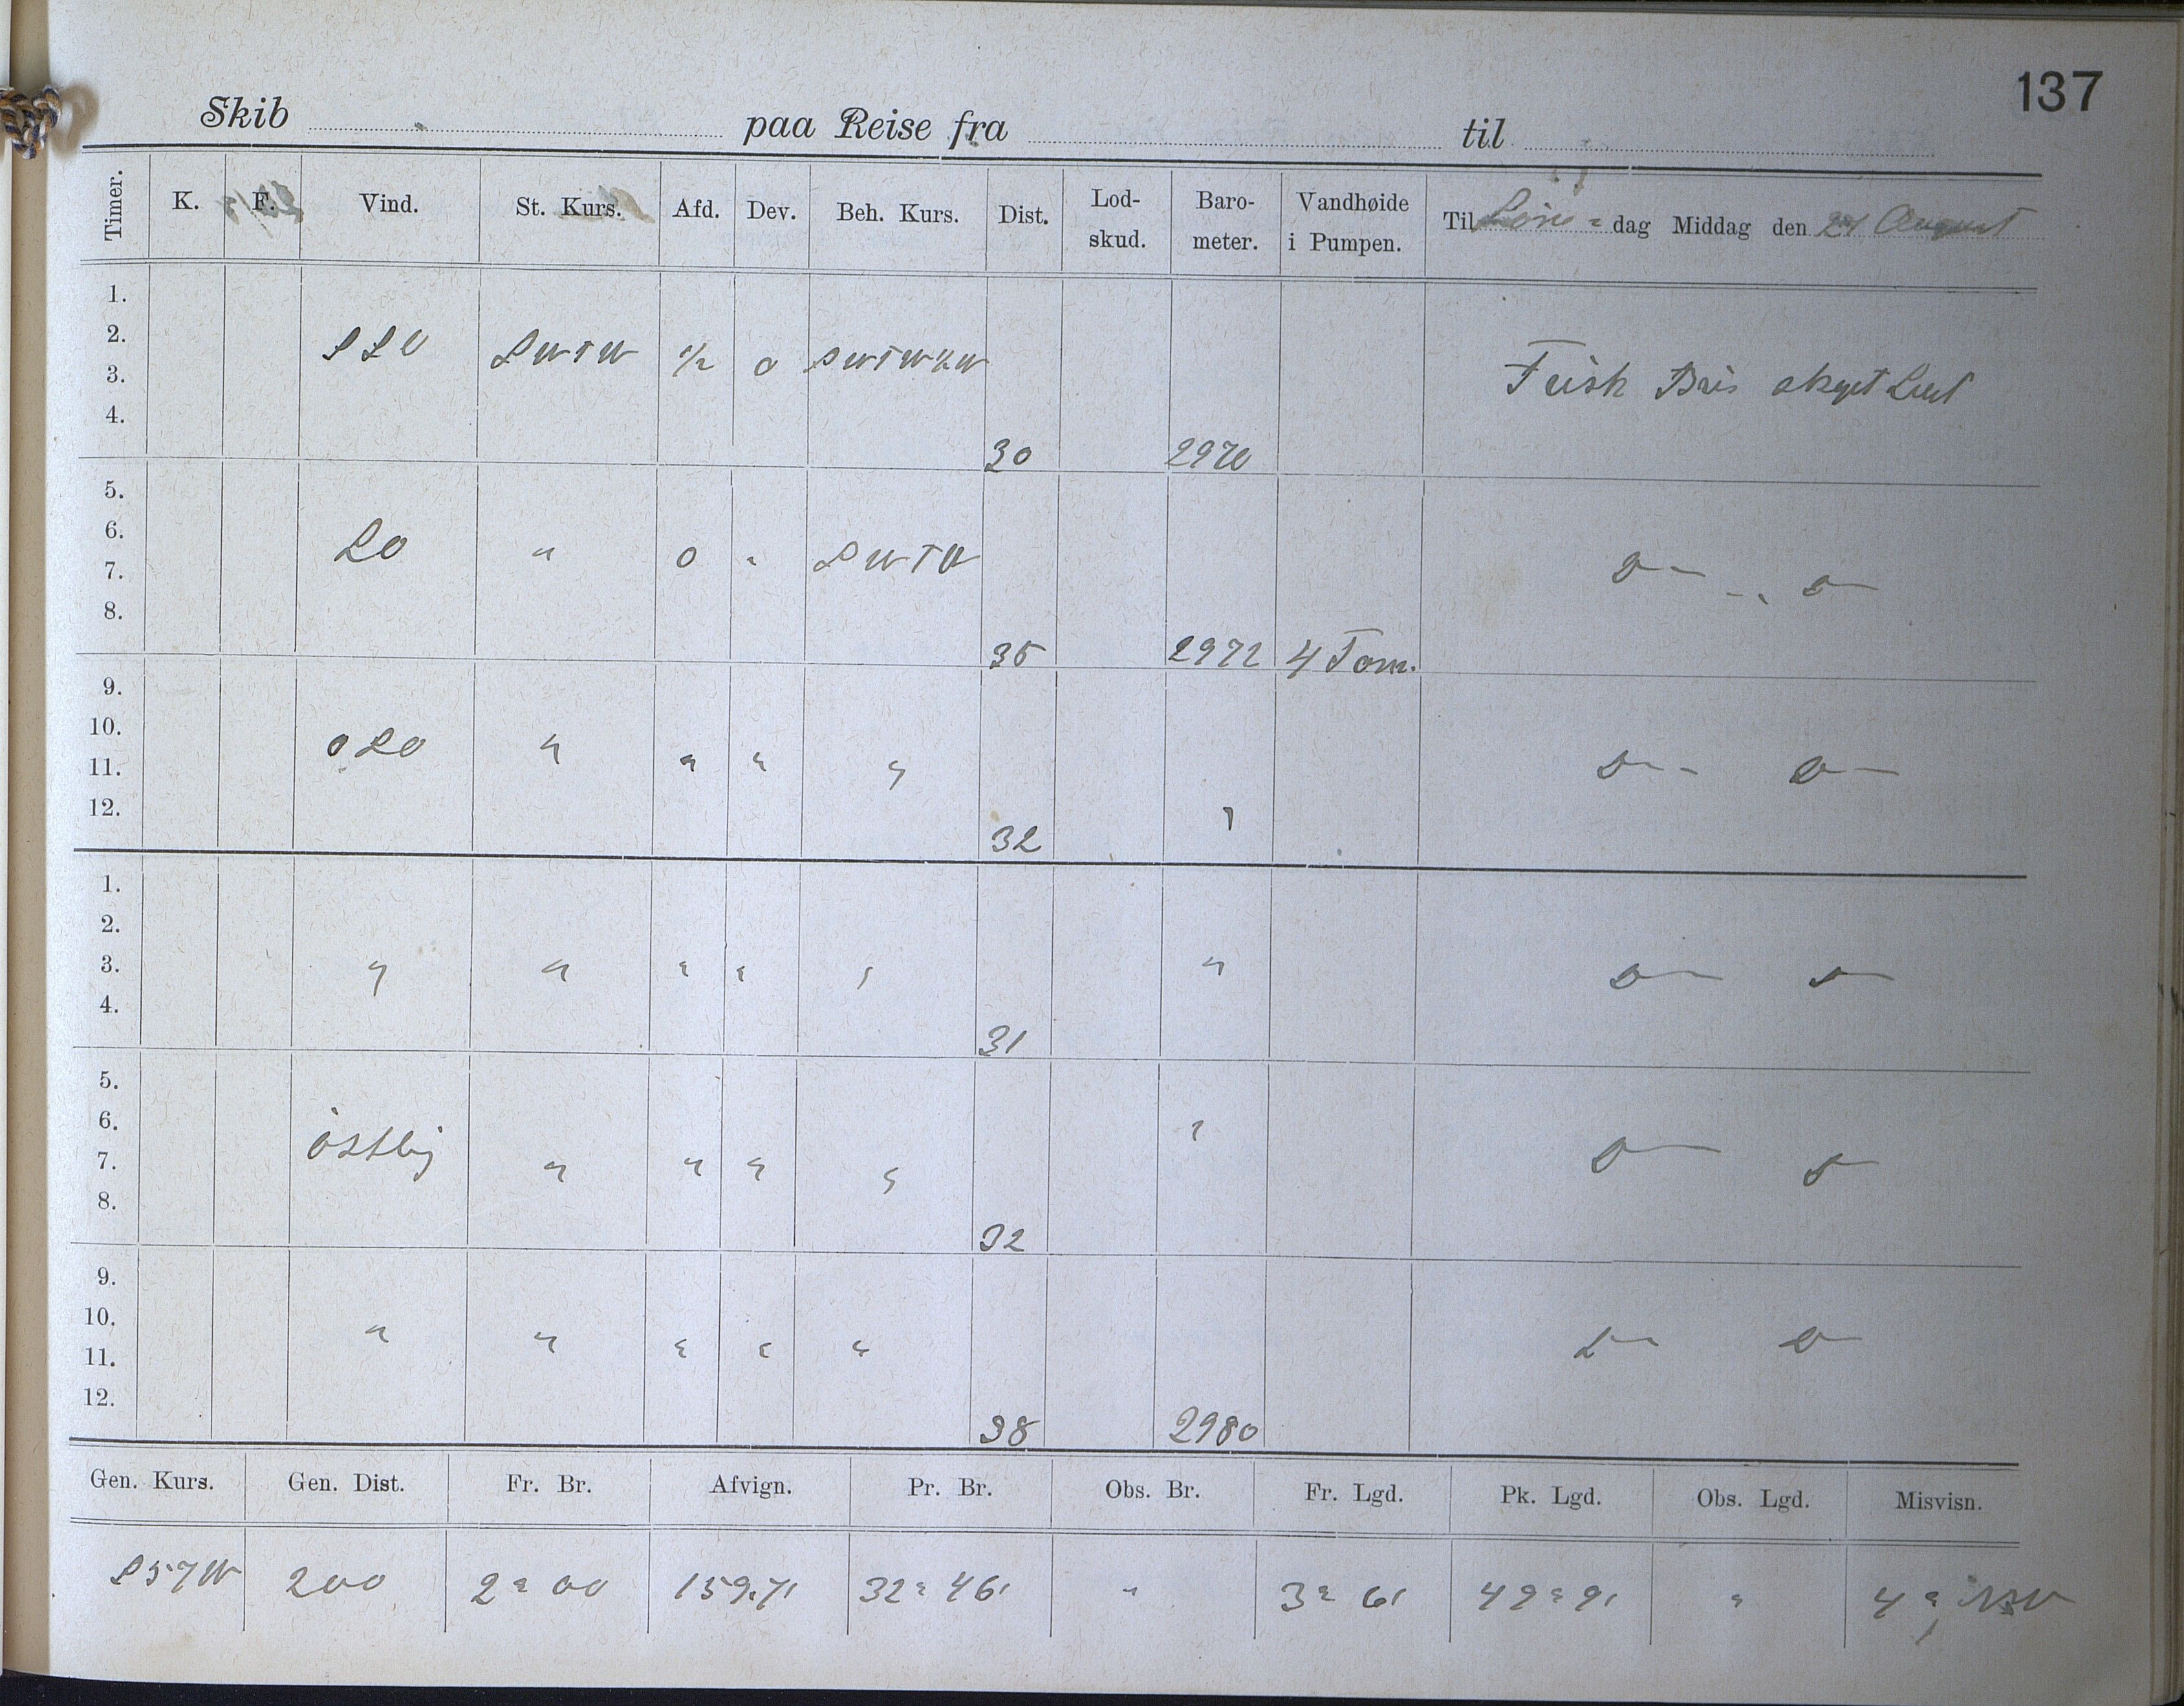 137
Skib paa Reise fra til
Timer. K. F. Vind. St. Kurs. Afd. Dev. Beh. Kurs. Dist. Lod-skud. Baro-meter. Vandhøide i Pumpen. Til Løve- dag Middag den 24 August
1.
2. SSO SWTW 1/2 0 SWTW½W
3. Frisk Bris skyet Luft
4. 30 2970
5.
6. SO " 0 " SWTW
7. D— " D—
8. 35 2972 4 Tom.
9.
10. OSO " " " "
11. D— D—
12. 32 "
1.
2.
3. " " " " " " D— D—
4. 31
5.
6. östlig "
7. " " " " D— D—
8. 32
9.
10. " " " " " D— D—
11.
12. 38 2980
Gen. Kurs. Gen. Dist. Fr. Br. Afvign. Pr. Br. Obs. Br. Fr. Lgd. Pk. Lgd. Obs. Lgd. Misvisn.
S57W 200 2° 00 159,71 32° 46' " 3° 6' 49° 9' " 4°